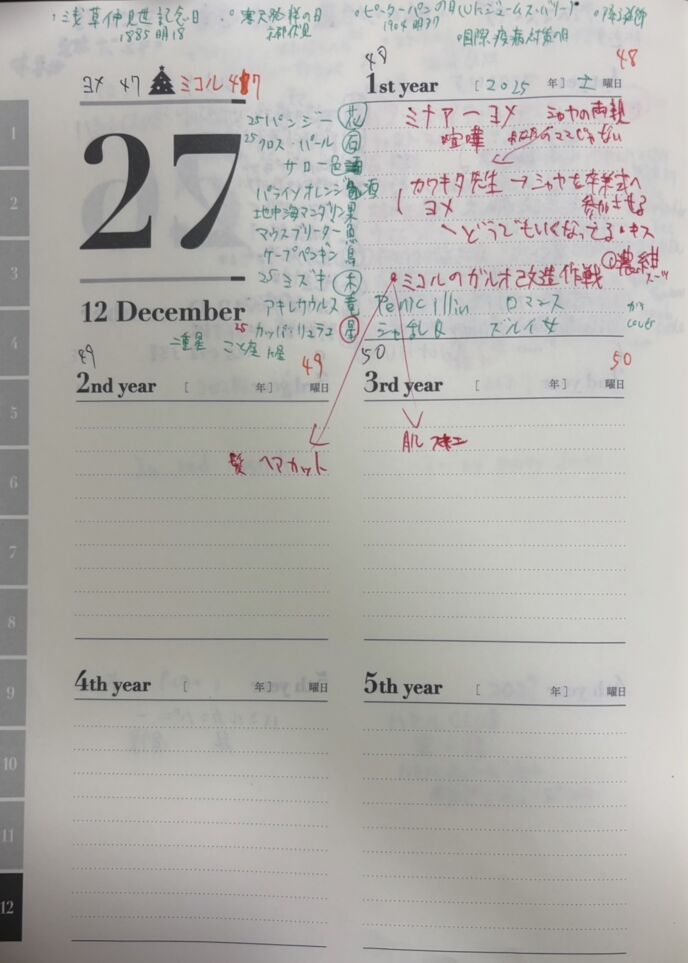 浅草仲見世記念日
1885 明18
寒天発祥の日
ピーターパンの日
1904 明37
国際疫病対策の日
ヨメ 47 ミコル 47
27
12 December
25 パンジー 花
25 クロス・パール 石
サロー色 酒
パライソオレンジ 酒
地中海マンダリン 果
マウスブリーダー 魚
ケープペンギン 鳥
25 ミズキ 木
アキレサウルス 竜
25 カッパ・リュラエ 星
二重星 こと座
48 48
1st year [ 2025 年] 土 曜日
ミナアーヨメ シャヤの両親
喧嘩
カワキタ先生 → シャヤを卒業式へ
ヨメ 参加させる
どうでもいくなってる・キス
ミコルのガルオ改造作戦 ① 濃紺
スーツ
Penicillin ロマンス
シャ乱Q ズルイ女 cover
49 49
2nd year [ 年] 曜日
髪 ヘアカット
50 50
3rd year [ 年] 曜日
肌
4th year [ 年] 曜日
5th year [ 年] 曜日
1
2
3
4
5
6
7
8
9
10
11
12